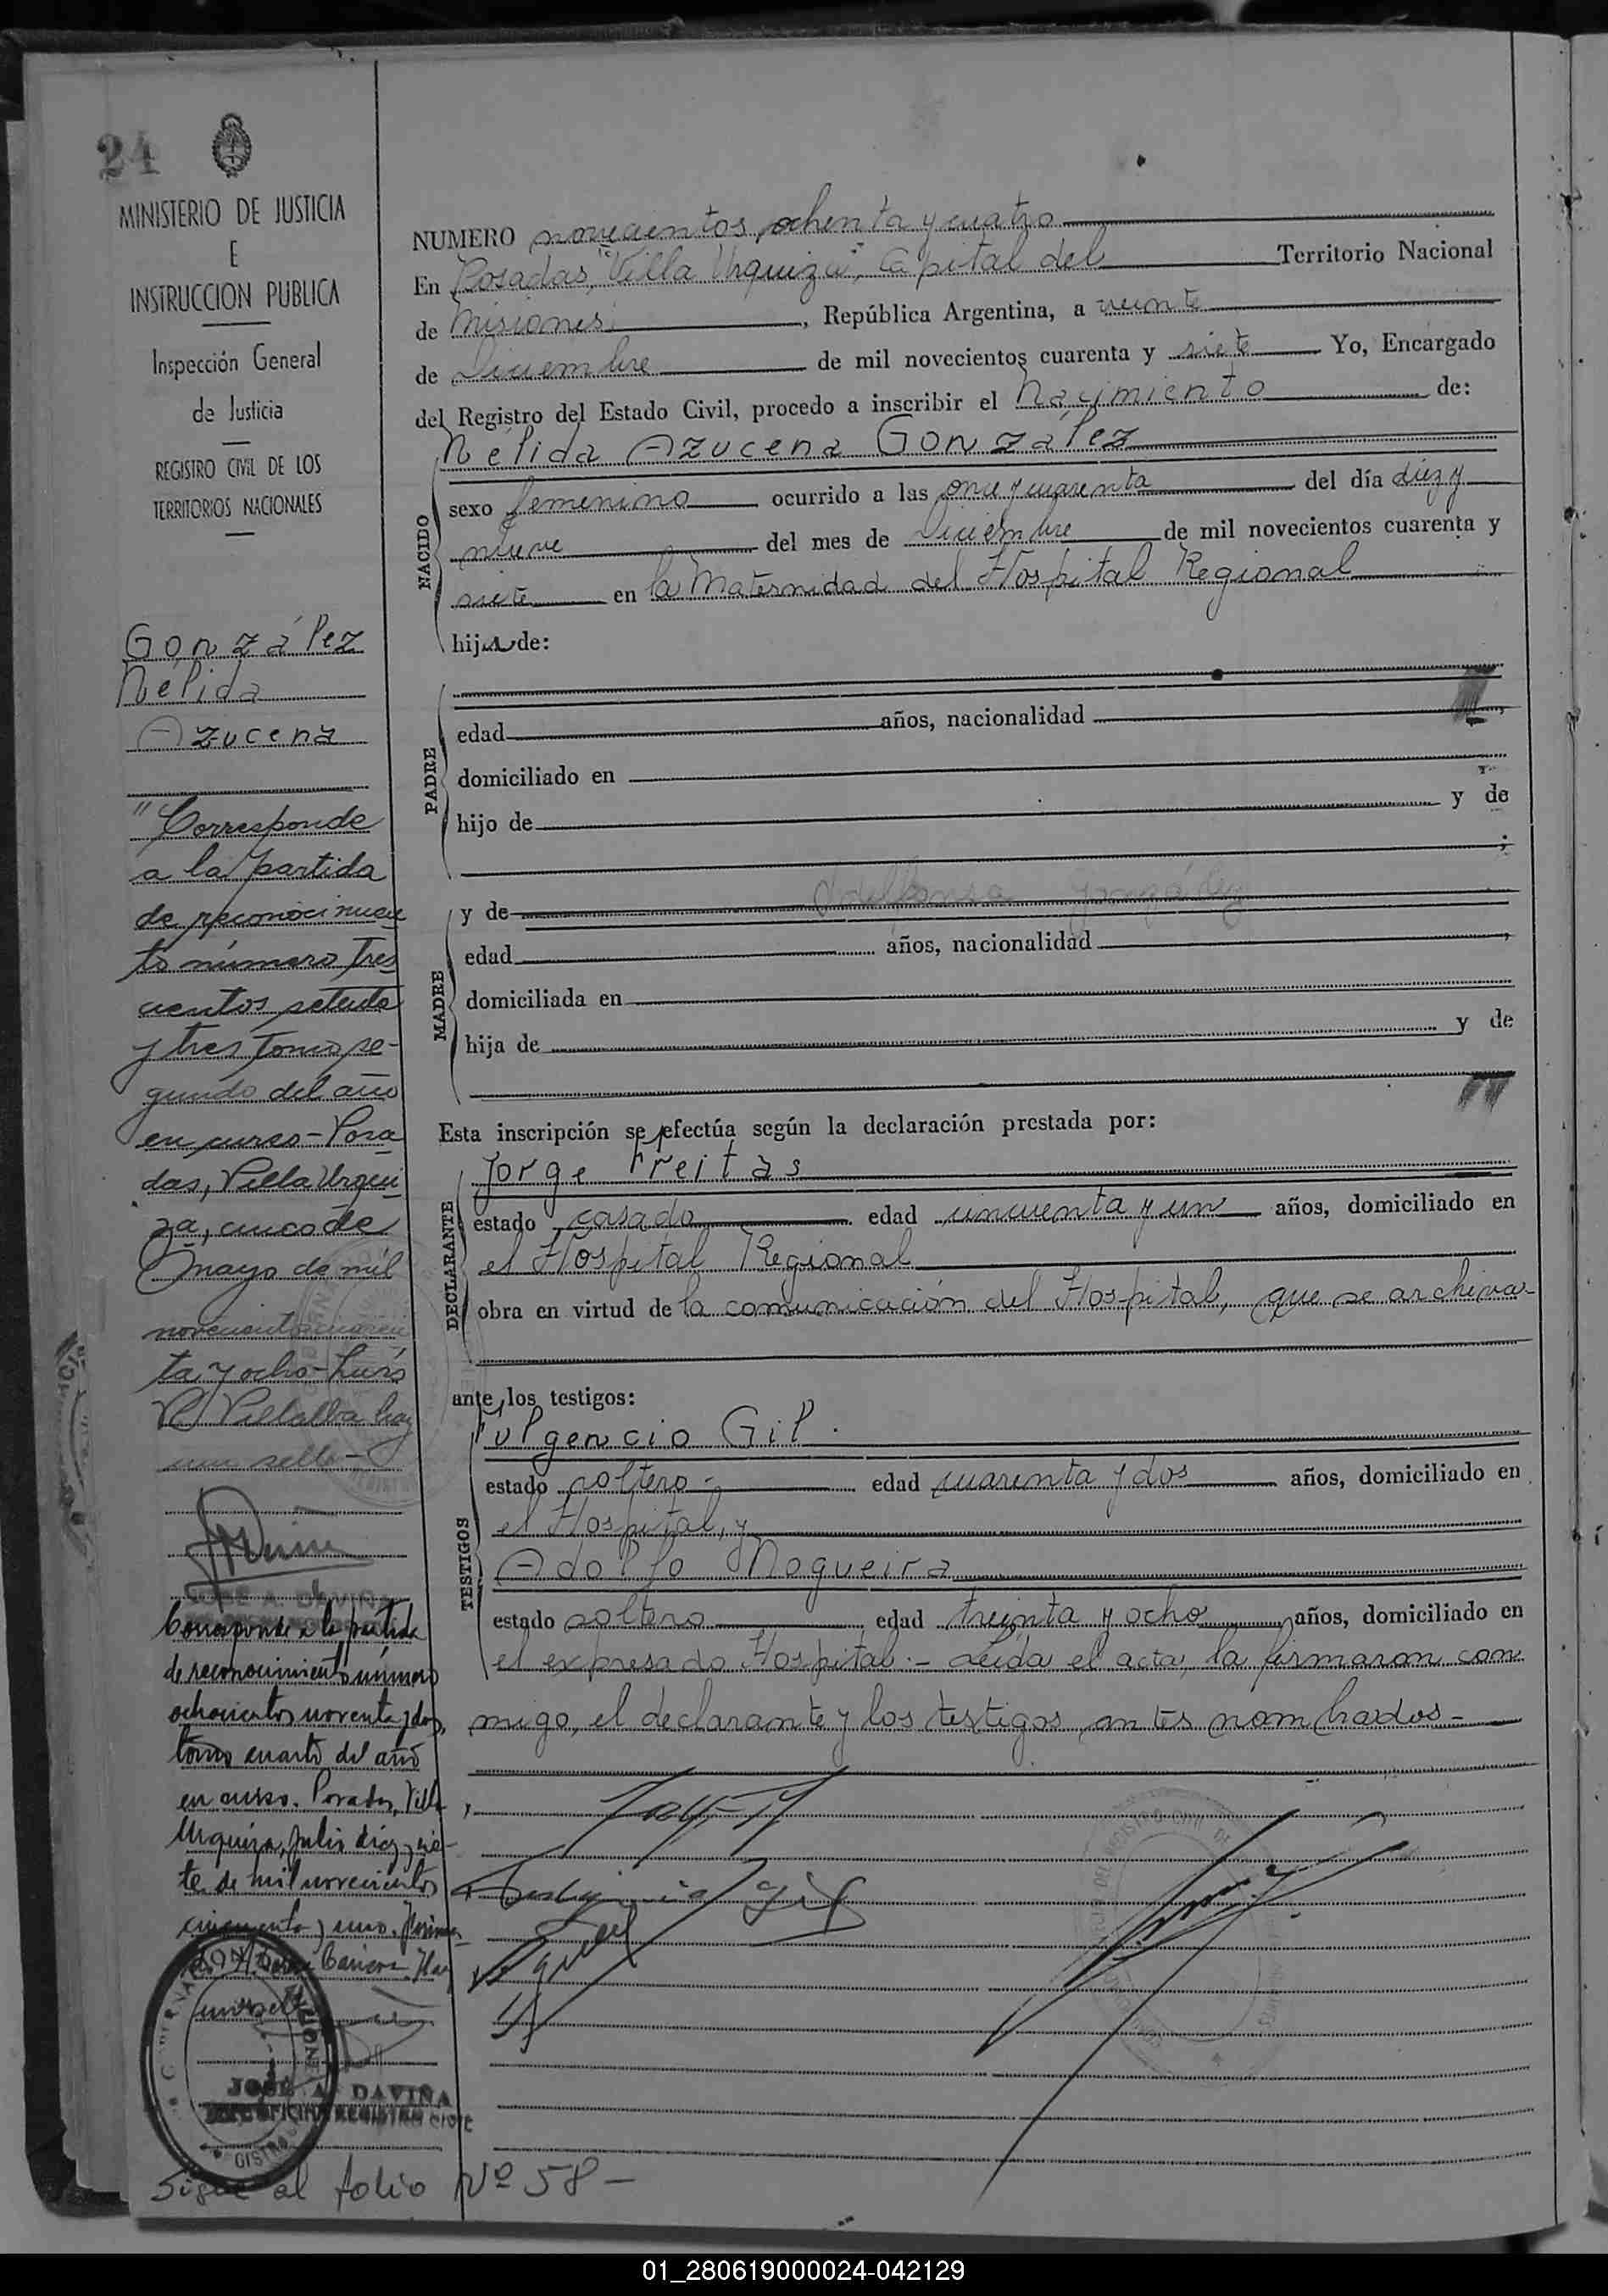 24
MINISTERIO DE JUSTICIA
E
INSTRUCCION PUBLICA
Inspección General
de Justicia
REGISTRO CIVIL DE LOS
TERRITORIOS NACIONALES
González
Nélida
Azucena
"Corresponde
a la partida
de reconocimien
to número tres
cientos setenta
y tres tomo se-
gundo del año
en curso - Posa
das, Villa Urqui
za, cinco de
Mayo de mil
novecientos cuaren
ta y ocho - Luis
Villalba hay
un sello -
JOSE A. DAVIÑA
Corresponde a la partida
de reconocimiento número
ochocientos noventa y dos,
tomo cuarto del año
en curso. Posadas, Villa
Urquiza, Julio diez y sie-
te de mil novecientos
cincuenta y uno.
Hay
un sello
JOSE A. DAVIÑA
JEFE OFICINA REGISTRO CIVIL
Sigue al folio Nº 58 -
NUMERO novecientos ochenta y cuatro
En Posadas, "Villa Urquiza", Capital del Territorio Nacional
de Misiones, República Argentina, a veinte
de Diciembre de mil novecientos cuarenta y siete Yo, Encargado
del Registro del Estado Civil, procedo a inscribir el Nacimiento de:
NACIDO
Nélida Azucena González
sexo femenino ocurrido a las once y cuarenta del día diez y
nueve del mes de Diciembre de mil novecientos cuarenta y
siete en la Maternidad del Hospital Regional
hija de:
PADRE
edad años, nacionalidad ,
domiciliado en
hijo de y de
;
MADRE
y de
edad años, nacionalidad ,
domiciliada en
hija de y de
Esta inscripción se efectúa según la declaración prestada por:
DECLARANTE
Jorge Freitas
estado casado edad cincuenta y un años, domiciliado en
el Hospital Regional
obra en virtud de la comunicación del Hospital, que se archiva-
ante los testigos:
TESTIGOS
Fulgencio Gil
estado soltero - edad cuarenta y dos años, domiciliado en
el Hospital, y
Adolfo Nogueira
estado soltero edad treinta y ocho años, domiciliado en
el expresado Hospital.- Leída el acta, la firmaron con
migo, el declarante y los testigos antes nombrados -
01_280619000024-042129